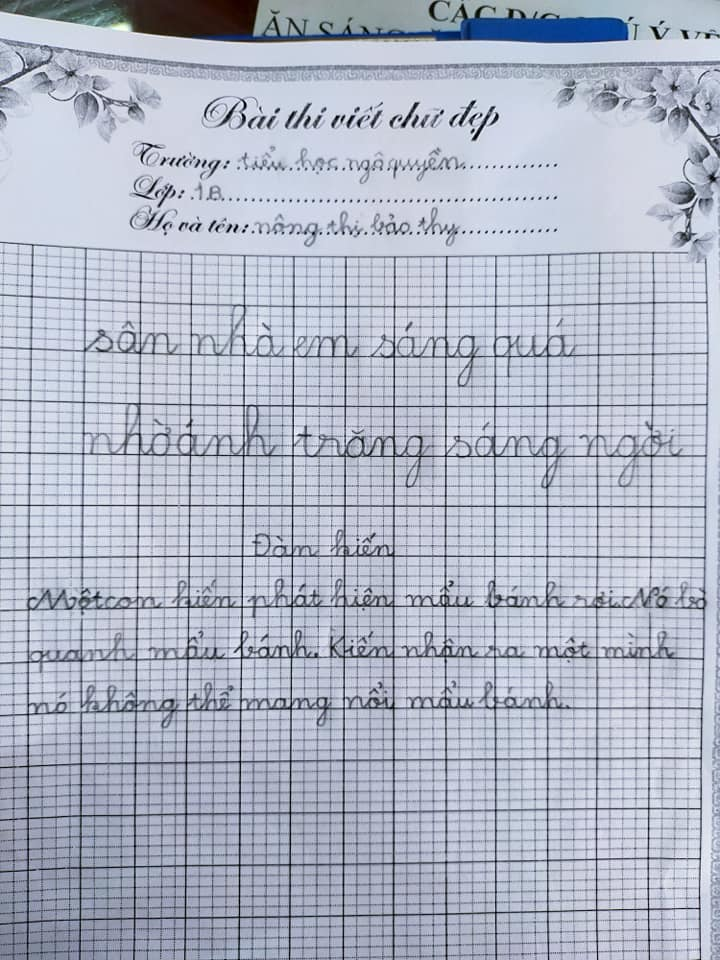 ĂN SÁNG
Bài thi viết chữ đẹp
Trường: tiểu học ngô quyền
Lớp: 1B
Họ và tên: nông thị bảo thy
sân nhà em sáng quá
nhờ ánh trăng sáng ngời
Đàn kiến
Một con kiến phát hiện mẩu bánh rơi. Nó bò
quanh mẩu bánh. Kiến nhận ra một mình
nó không thể mang nổi mẩu bánh.